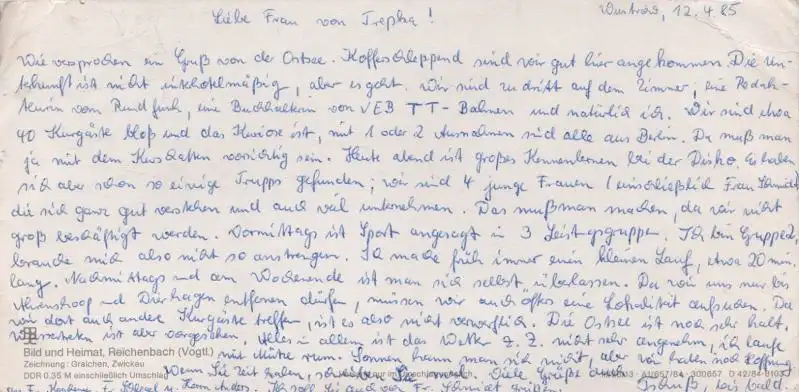 Wustrow, 12.4.85
Liebe Frau von Trepka!
Wie versprochen ein Gruß von der Ostsee. Kofferschleppend sind wir gut hier angekommen. Die Un-
terkunft ist nicht interhotelmäßig, aber es geht. Wir sind zu dritt auf dem Zimmer, eine Redak-
teurin vom Rundfunk, eine Buchhalterin von VEB TT-Bahnen und natürlich ich. Wir sind etwa
40 Kurgäste bloß und das Kuriose ist, mit 1 oder 2 Ausnahmen sind alle aus Berlin. Da muß man
ja mit dem Kurschatten vorsichtig sein. Heute abend ist großes Kennenlernen bei der Disko. Es haben
sich aber schon so einige Trupps gefunden; wir sind 4 junge Frauen (einschließlich Frau Schmidt)
die sich ganz gut verstehen und auch viel unternehmen. Das muß man machen, da wir nicht
groß beschäftigt werden. Vormittags ist Sport angesagt in 3 Leistgsgruppen. Ich bin Gruppe 2,
brauche mich also nicht so anstrengen. Ich mache früh immer einen kleinen Lauf, etwa 20 min.
lang. Nachmittags und am Wochenende ist man sich selbst überlassen. Da wir uns nur bis
Ahrenshoop und Dierhagen entfernen dürfen, müssen wir auch öfters eine Lokalität aufsuchen. Da
wir dort auch andere Kurgäste treffen, ist es also nicht verwerflich. Die Ostsee ist noch sehr kalt.
ist aber vorgesehen. Alles in allem ist das Wetter z. Z. nicht sehr angenehm, ich laufe
mit Mütze rum. Sonnen kann man sich nicht, aber wir haben noch Hoffnung
Wenn Sie Zeit haben, Sie Viele Grüße auch
Fr. Schmidt
Tschüß, bis bald.
Bild und Heimat, Reichenbach (Vogtl.)
Zeichnung: Gralchen, Zwickau
DDR 0,35 M einschließlich Umschlag